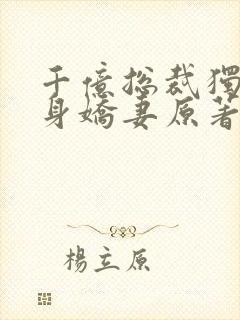 千億总裁獨
身嬌妻原著
楊立原